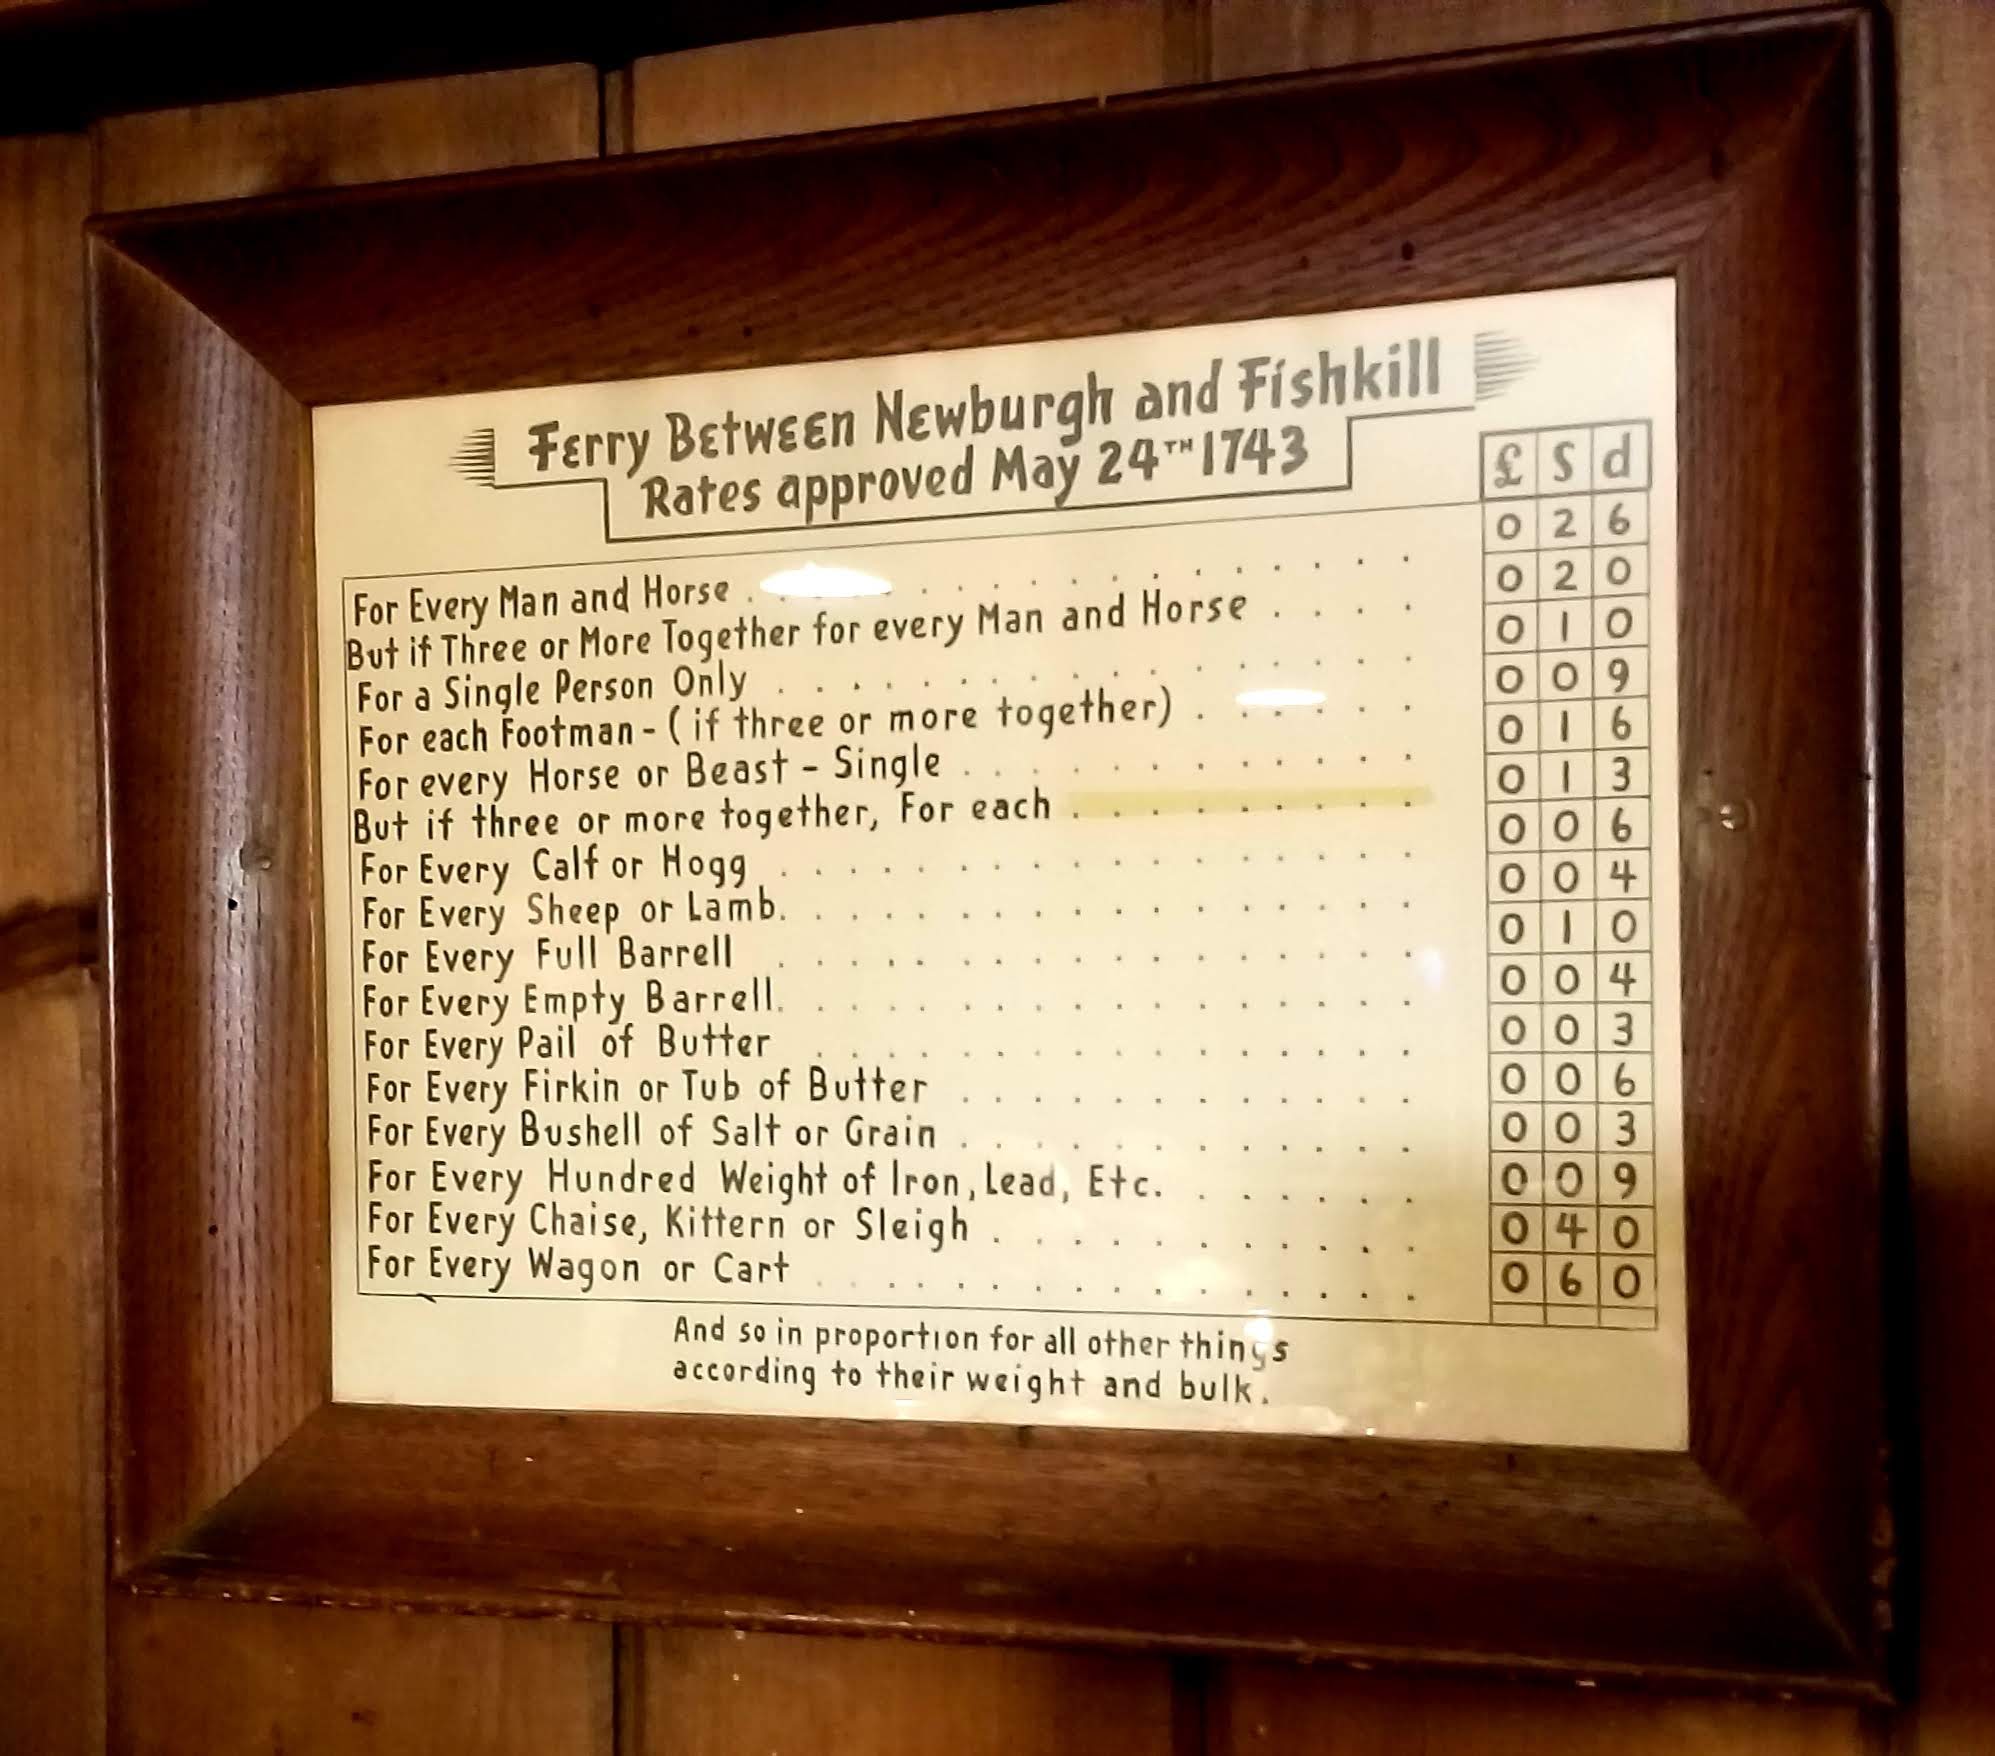 Ferry Between Newburgh and Fishkill
Rates approved May 24TH 1743
£ S d
For Every Man and Horse . . . . . . . . . . . . 0 2 6
But if Three or More Together for every Man and Horse . . . . 0 2 0
For a Single Person Only . . . . . . . . . . . . 0 1 0
For each Footman - (if three or more together) . . . . . 0 0 9
For every Horse or Beast - Single . . . . . . . . . . 0 1 6
But if three or more together, For each . . . . . . . . . 0 1 3
For Every Calf or Hogg . . . . . . . . . . . . . 0 0 6
For Every Sheep or Lamb. . . . . . . . . . . . . 0 0 4
For Every Full Barrell . . . . . . . . . . . . . 0 1 0
For Every Empty Barrell. . . . . . . . . . . . . 0 0 4
For Every Pail of Butter . . . . . . . . . . . . 0 0 3
For Every Firkin or Tub of Butter . . . . . . . . . . 0 0 6
For Every Bushell of Salt or Grain . . . . . . . . . . 0 0 3
For Every Hundred Weight of Iron, Lead, Etc. . . . . . . 0 0 9
For Every Chaise, Kittern or Sleigh . . . . . . . . . . 0 4 0
For Every Wagon or Cart . . . . . . . . . . . . 0 6 0
And so in proportion for all other things
according to their weight and bulk.